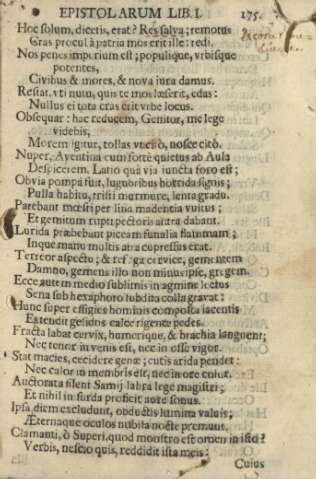 EPISTOLARUM LIB. I. 175.
Hoc solum, dicetis, erat? Res salva; remotus
Gras procul à patria mos erit ille: redi.
Nos penes imperium est; populique, vrbisque
potentes,
Civibus & mores, & nova iura damus.
Restat vti nutu, quis te mos læserit, edas:
Nullus ei tota cras erit vrbe locus.
Obsequar: hac reducem, Genitor, me lege
videbis,
Morem igitur, tollas vt citò, nosce citò.
Nuper, Aventina cum fortè quietus ab Aula
Despicerem, Latio quà via iuncta foro est;
Obvia pompa fuit, lugubribus horrida signis;
Pulla habitu, tristi murmure, lenta gradu.
Parebant mœsti per lina madentia vultus;
Et gemitum rupti pectoris atra dabant.
Lurida præbebant piceam funalia flammam;
Inque manu multis atra cupressus erat.
Terreor aspectu; & cervice, gementem
Damno, gemens illo non minus ipse, gregem.
Ecce autem medio sublimis in agmine lectus
Sena sub hexaphoro subdita colla gravat:
Hunc super effigies hominis composta iacentis
Extendit gelidos calce rigente pedes.
Fracta labat cervix, humerique, & brachia languent;
Nec tenor in venis est, nec in osse vigor.
Stat macies, cecidere genæ; cutis arida pendet:
Nec calor in membris est, nec in ore color.
Auctorata silent Samij labra lege magistri;
Et nihil in surda proficit aure sonus.
Ipsa diem excludunt, obductis lumina valvis;
Æternaque oculos nubila nocte premunt.
Clamanti, ò Superi, quod monstro est omen in isto?
Verbis, nescio quis, reddidit ista meis:
Cuius